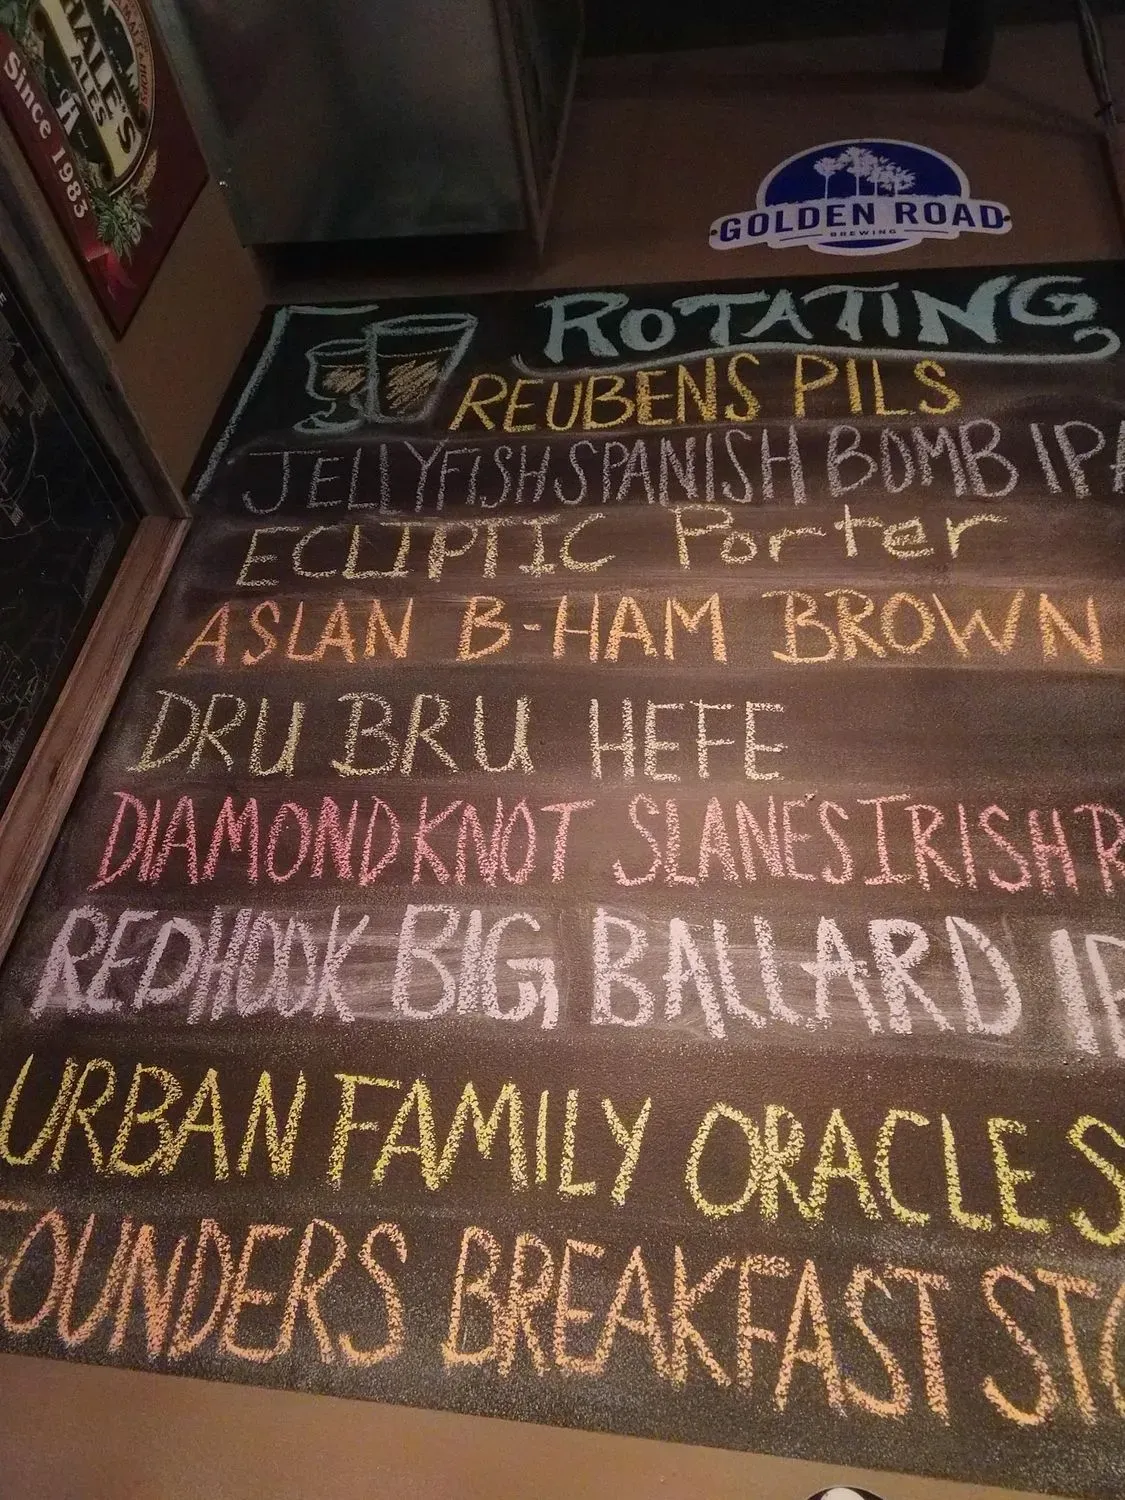 HALE'S
ALES
Since 1983
GOLDEN ROAD
BREWING
ROTATING
REUBENS PILS
JELLYFISH SPANISH BOMB IPA
ECLIPTIC Porter
ASLAN B-HAM BROWN
DRU BRU HEFE
DIAMOND KNOT SLANES IRISH R
REDHOOK BIG BALLARD IP
URBAN FAMILY ORACLE S
FOUNDERS BREAKFAST STO